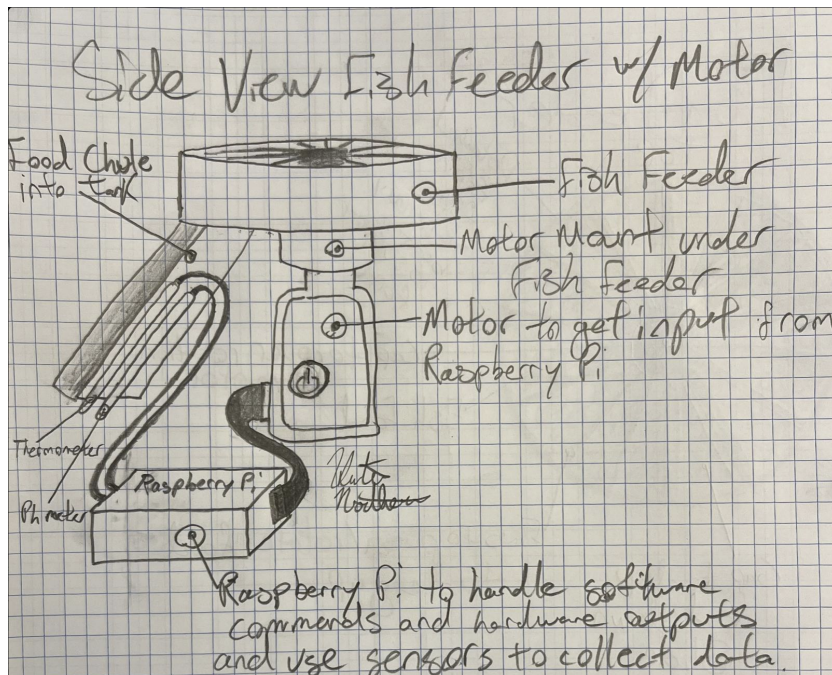 Side View Fish Feeder w/ Motor
Food Chute
into tank
Fish Feeder
Motor Mount under
Fish feeder
Motor to get input from
Raspberry Pi
Thermometer
Ph meter
Raspberry Pi
Raspberry Pi to handle software
commands and hardware outputs
and use sensors to collect data.